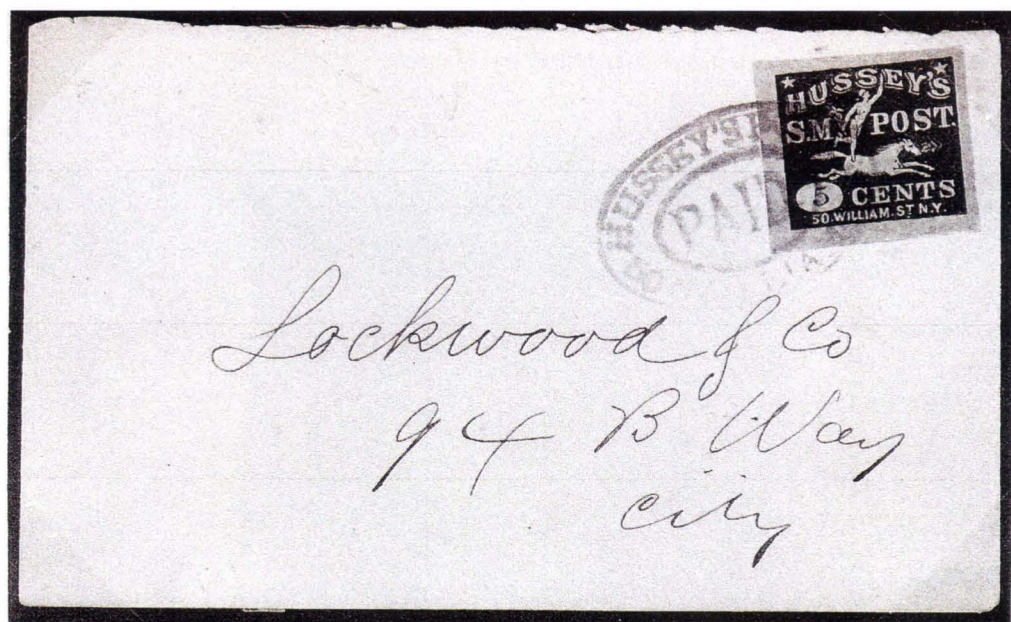 HUSSEY'S
S.M. POST.
5 CENTS
50. WILLIAM. ST. N.Y.
HUSSEY'S
PAID
Lockwood & Co
94 B Way
City